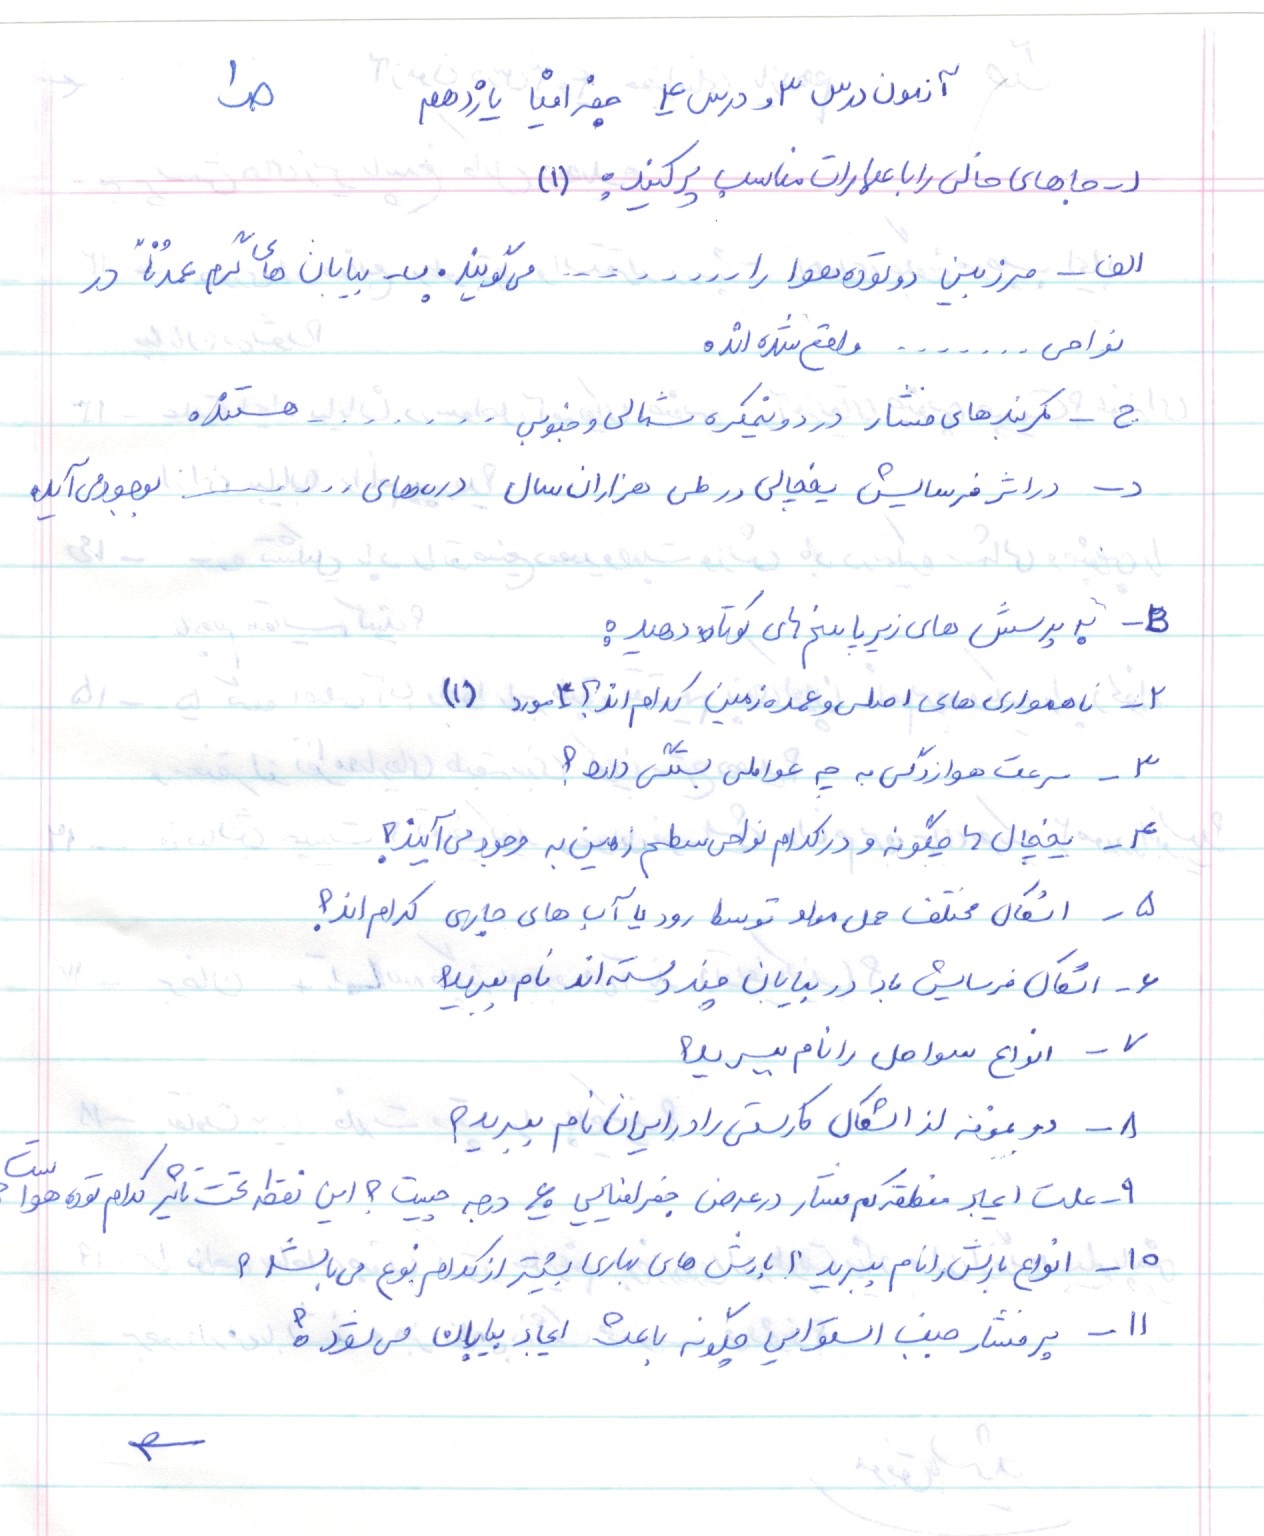 آزمون درس ۳ و درس ۴ جغرافیا یازدهم ص۱
۱- جاهای خالی را با عبارات مناسب پر کنید: (۱)
الف - مرز بین دو توده هوا را ........... می‌گویند. ب- بیابان های گرم عمدتاً در
نواحی ....... واقع شده اند.
ج - کمربندهای فشار در دو نیمکره شمالی و جنوبی .......... هستند.
د- در اثر فرسایش یخچالی در طی هزاران سال دره‌های ........ بوجود می آید.
B- به پرسش های زیر پاسخ های کوتاه دهید:
۲- ناهمواری های اصلی و عمده زمین کدام اند؟ ۴ مورد (۱)
۳- سرعت هوازدگی به چه عواملی بستگی دارد؟
۴- یخچال ها چگونه و در کدام نواحی سطح زمین به وجود می آیند؟
۵- اشکال مختلف حمل مواد توسط رود یا آب های جاری کدام اند؟
۶- اشکال فرسایش باد در بیابان چند دسته اند نام ببرید؟
۷- انواع سواحل را نام ببرید؟
۸- دو نمونه از اشکال کارستی را در ایران نام ببرید؟
۹- علت ایجاد منطقه کم فشار در عرض جغرافیایی ۶۰ درجه چیست؟ این نقطه تحت تأثیر کدام توده هواست؟
۱۰- انواع بارش را نام ببرید؟ بارش های بهاری بیشتر از کدام نوع می باشد؟
۱۱- پر فشار جنب استوایی چگونه باعث ایجاد بیابان می شود؟